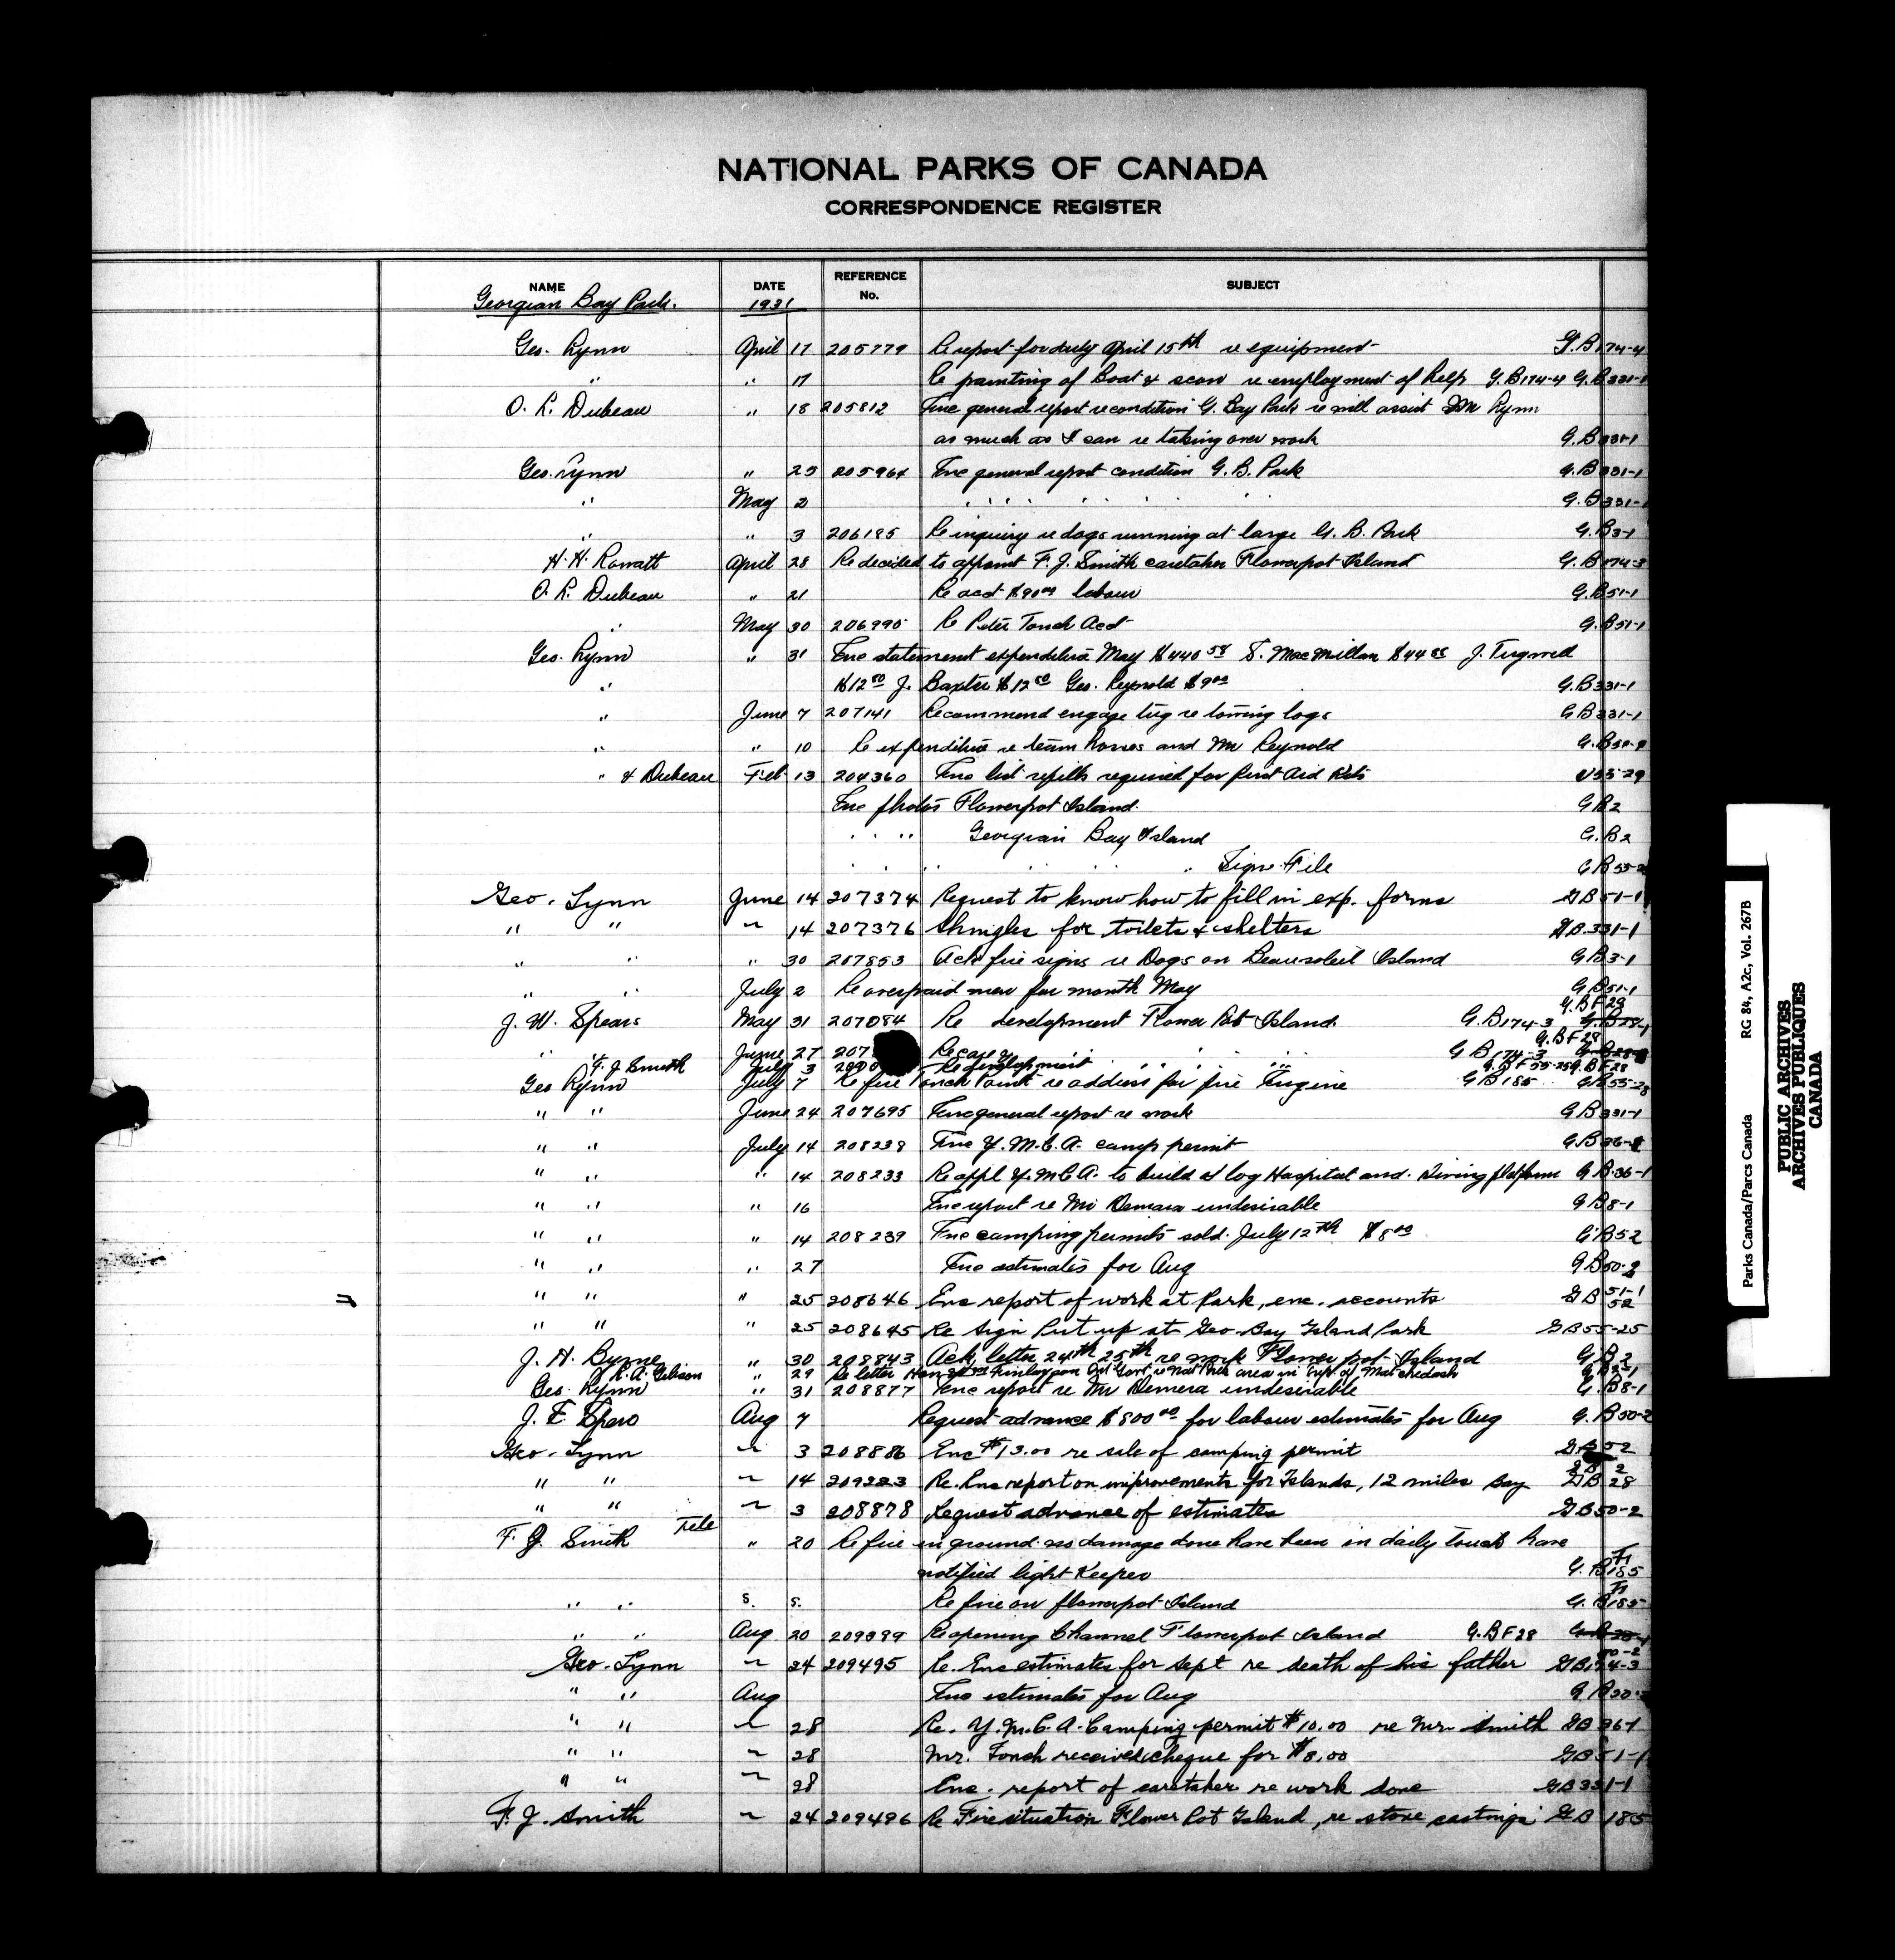 NATIONAL PARKS OF CANADA
CORRESPONDENCE REGISTER
NAME DATE REFERENCE No. SUBJECT
Georgian Bay Park. 1931
Geo. Lynn April 17 205779 Re report for duty April 15th re equipment G.B 174-4
" " 17 Re painting of Boat & scow re employment of help G.B 174-4 G.B 331-1
O. L. Dubeau " 18 205812 Enc general report re condition G. Bay Park re will assist Mr Lynn
as much as I can re taking over work G.B 331-1
Geo. Lynn " 25 205964 Enc general report condition G.B. Park G.B 331-1
" May 2 " " " " " " " G.B 331-1
" " 3 206185 Re inquiry re dogs running at large G.B. Park G.B 3-1
H. H. Rowatt April 28 Re decided to appoint F. J. Smith caretaker Flowerpot Island G.B 174-3
O. L. Dubeau " 21 Re acct $90.00 labour G.B 51-1
" May 30 206995 Re Peter Tonch Acct G.B 51-1
Geo. Lynn " 31 Enc statement expenditure May $440.58 S. MacMillan $44 J. Tugwell
" $12.80 J. Baxter $12.80 Geo. Reynold $9.00 G.B 331-1
" June 7 207141 Recommend engage tug re towing logs G.B 331-1
" " 10 Re expenditure re team horses and Mr Reynold G.B 50-2
" & Dubeau Feb 13 204360 Enc list refills required for First Aid Kits U 55-29
Enc photos Flowerpot Island. G.B 2
" " " Georgian Bay Island G.B 2
" " " " " " Signs File G.B 55-2
Geo. Lynn June 14 207374 Request to know how to fill in exp. forms G.B 51-1
" " " 14 207376 Shingles for toilets & shelters G.B. 331-1
" " " 30 207853 Ack fire signs re Dogs on Beausoleil Island G.B 3-1
" " July 2 Re overpaid men for month May G.B 51-1
G.B F 28
J. W. Spears May 31 207084 Re development Flower Pot Island. G.B 174-3 G.B 28-1
G.B F 28
" June 27 207 Re care " " " G B 174-3 G.B 28-1
F. J. Smith July 3 Re development " " " G.B F 55-25 G.B F 28
Geo Lynn July 7 Re fire Tonch Point re address for fire Engine G B 185 G.B 55-28
" " June 24 207695 Enc general report re work G B 331-1
" " July 14 208238 Enc Y.M.C.A. camp permit G.B 36-1
" " " 14 208233 Re appl Y.M.C.A. to build a log Hospital and Diving platform G.B 36-1
" " " 16 Enc report re Mr Demara undesirable G B 8-1
" " " 14 208239 Enc camping permits sold. July 12th $8.00 G.B 52
" " " 27 Enc estimates for Aug G B 50-2
" " " 25 208646 Enc report of work at Park, enc. accounts G B 51-1 52
" " " 25 208645 Re Sign Put up at Geo. Bay Island Park G B 55-25
J. H. Byrne " 30 208843 Ack letter 24th 25th re work Flower pot Island G.B 2
R. A. Gibson " 29 Re letter Hon Finlayson Ont Govt re Nat Park area in Twp of Matchedash G B 2-1
Geo. Lynn " 31 208877 Enc report re Mr Demera undesirable G. B 8-1
J. E. Spero Aug 7 Request advance $800.00 for labour estimates for Aug G. B 50-2
Geo. Lynn " 3 208886 Enc $13.00 re sale of camping permit G.B 52
" " " 14 209223 Re. Enc report on improvements for Islands, 12 miles Bay G B 2 G B 28
" " " 3 208878 Request advance of estimates G B 50-2
F. J. Smith Tele " 20 Re fire in ground no damage done have been in daily touch have
notified light Keeper G. B F1 185
" " s. s. Re fire on flowerpot Island G. B F1 185
" " Aug 20 209399 Re opening Channel Flowerpot Island G.B F 28 G.B 28-1
Geo. Lynn " 24 209495 Re. Enc estimates for Sept re death of his father G B 50-2 174-3
" " Aug Enc estimates for Aug G B 50-2
" " " 28 Re. Y.M.C.A. Camping permit $10.00 re Mr. Smith G B 36-1
" " " 28 Mr. Tonch received cheque for $8.00 G B 51-1
" " " 28 Enc. report of caretaker re work done G B 331-1
F. J. Smith " 24 209496 Re Fire situation Flower Pot Island, re stove castings G B 185
Parks Canada/Parcs Canada RG 84, A2c, Vol. 267B
PUBLIC ARCHIVES
ARCHIVES PUBLIQUES
CANADA